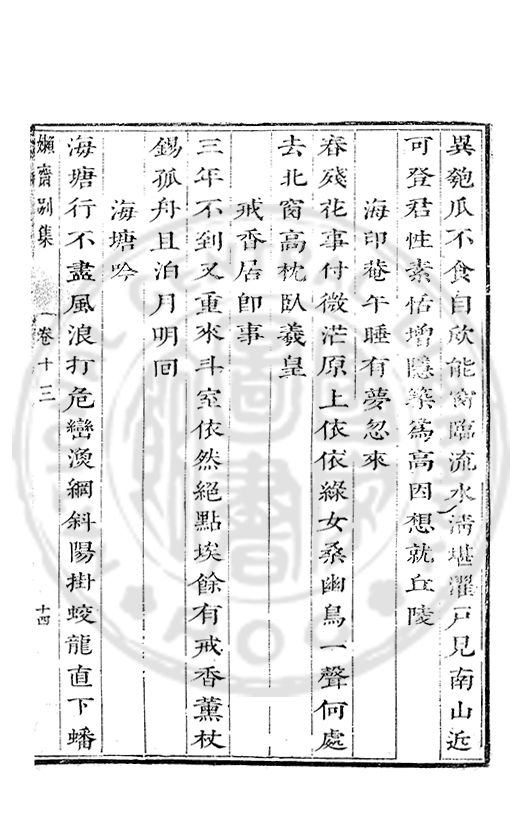 異匏瓜不食自欣能窗臨流水淸堪濯戸見南山近
可登君性素恬增隱築爲高因想就丘陵
海印菴午睡有夢忽來
春殘花事付微茫原上依依綠女桑幽鳥一聲何處
去北窗高枕臥羲皇
戒香居卽事
三年不到又重來斗室依然絕點埃餘有戒香薰杖
錫孤舟且泊月明回
海塘吟
海塘行不盡風浪打危巒漁網斜陽掛蛟龍直下蟠
嬾齋別集
卷十三
十四